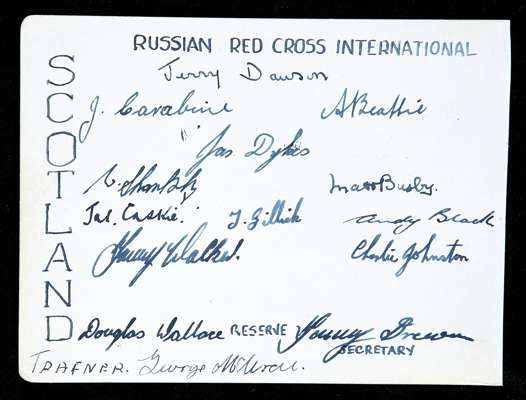 RUSSIAN RED CROSS INTERNATIONAL
SCOTLAND
Jerry Dawson
J. Carabine A Beattie
Jas. Dykes
Matt Busby.
Jas. Caskie. T. Gillick Andy Black
Tommy Walker. Charlie Johnston
Douglas Wallace RESERVE
SECRETARY
TRAFNER. George